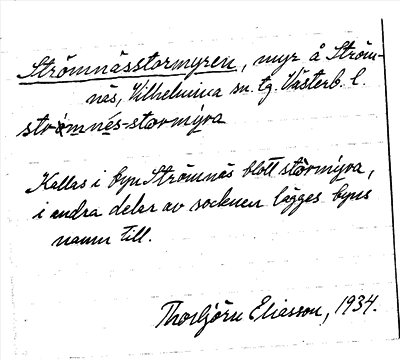 Strömnässtormyren, myr å Ström-
näs, Vilhelmina sn. tg. Västerb. l.
strömnés-stormýra
Kallas i byn Strömnäs blott stórmýra,
i andra delar av socknen lägges byns
namn till.
Thorbjörn Eliasson, 1934.